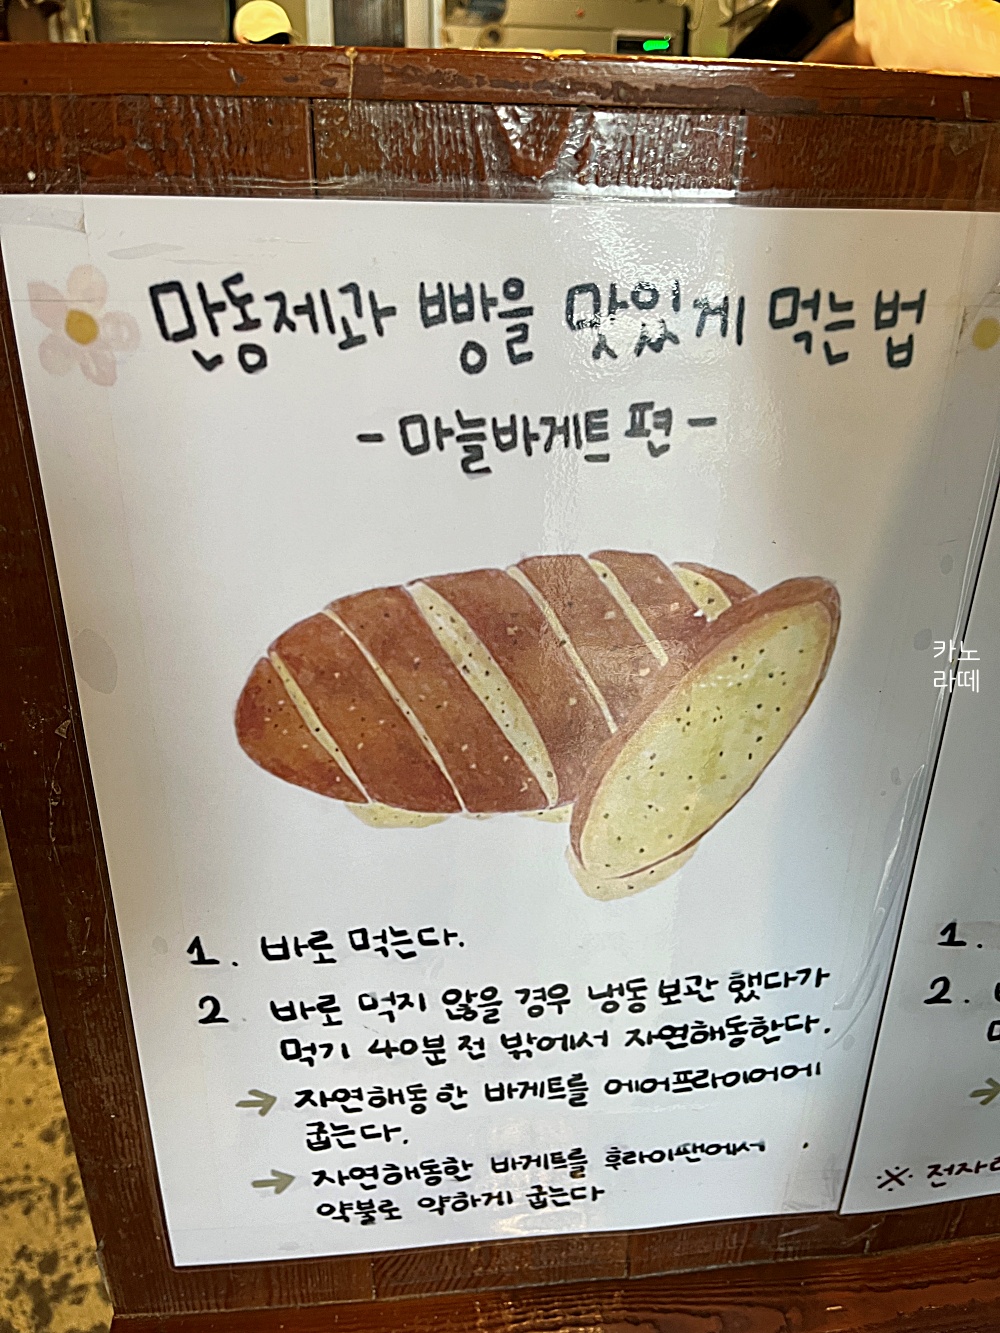 만동제과 빵을 맛있게 먹는 법
- 마늘바게트 편 -
1. 바로 먹는다.
2. 바로 먹지 않을 경우 냉동 보관 했다가
먹기 40분 전 밖에서 자연해동한다.
→ 자연해동 한 바게트를 에어프라이어에
굽는다.
→ 자연해동한 바게트를 후라이팬에서
약불로 약하게 굽는다
카노
라떼
1.
2.
※ 전자